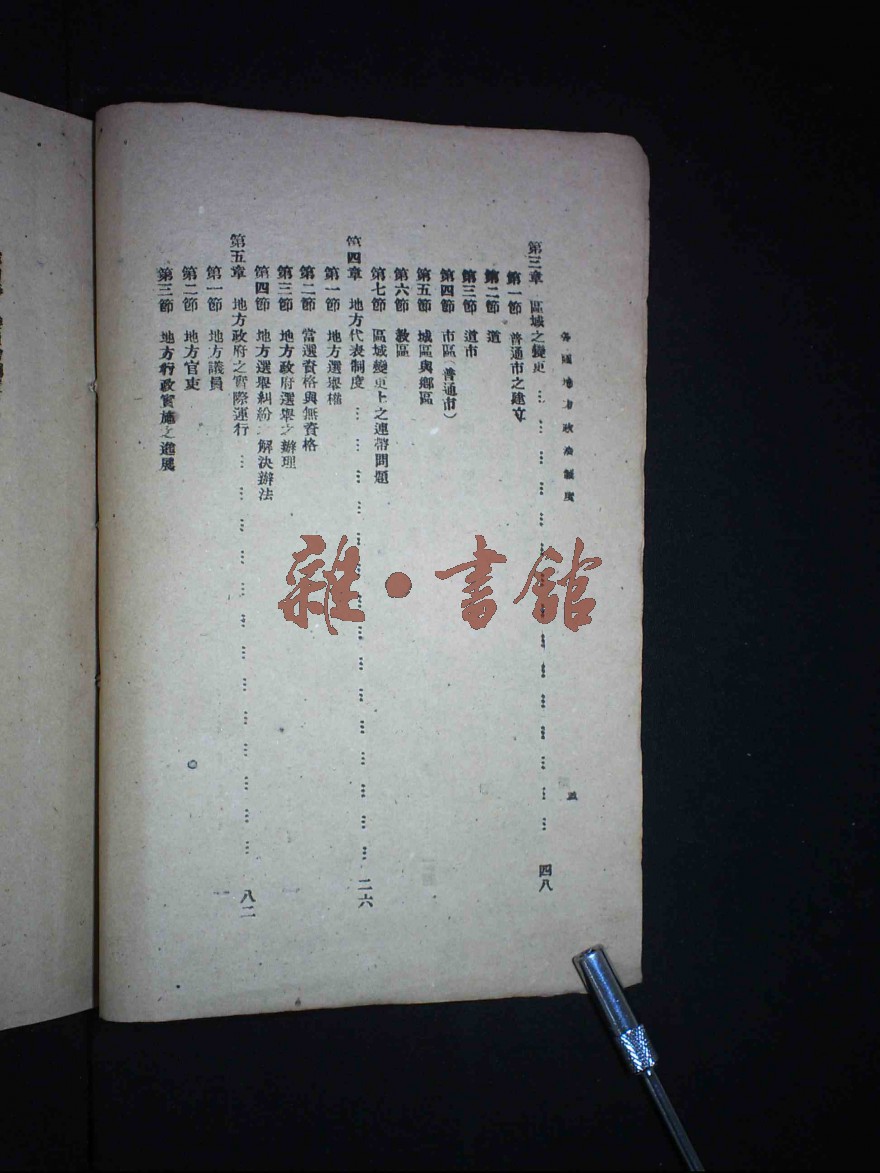 各國地方政治制度
第三章 區域之變更 ……………………………………… 四八
第一節 普通市之建立
第二節 道
第三節 道市
第四節 市區（普通市）
第五節 城區與鄉區
第六節 教區
第七節 區域變更上之連帶問題
第四章 地方代表制度 ……………………………………… 二六
第一節 地方選舉權
第二節 當選資格與無資格
第三節 地方政府選舉之辦理
第四節 地方選舉糾紛之解決辦法
第五章 地方政府之實際運行 ……………………………………… 八二
第一節 地方議員
第二節 地方官吏
第三節 地方行政實施之進展
雜·書館